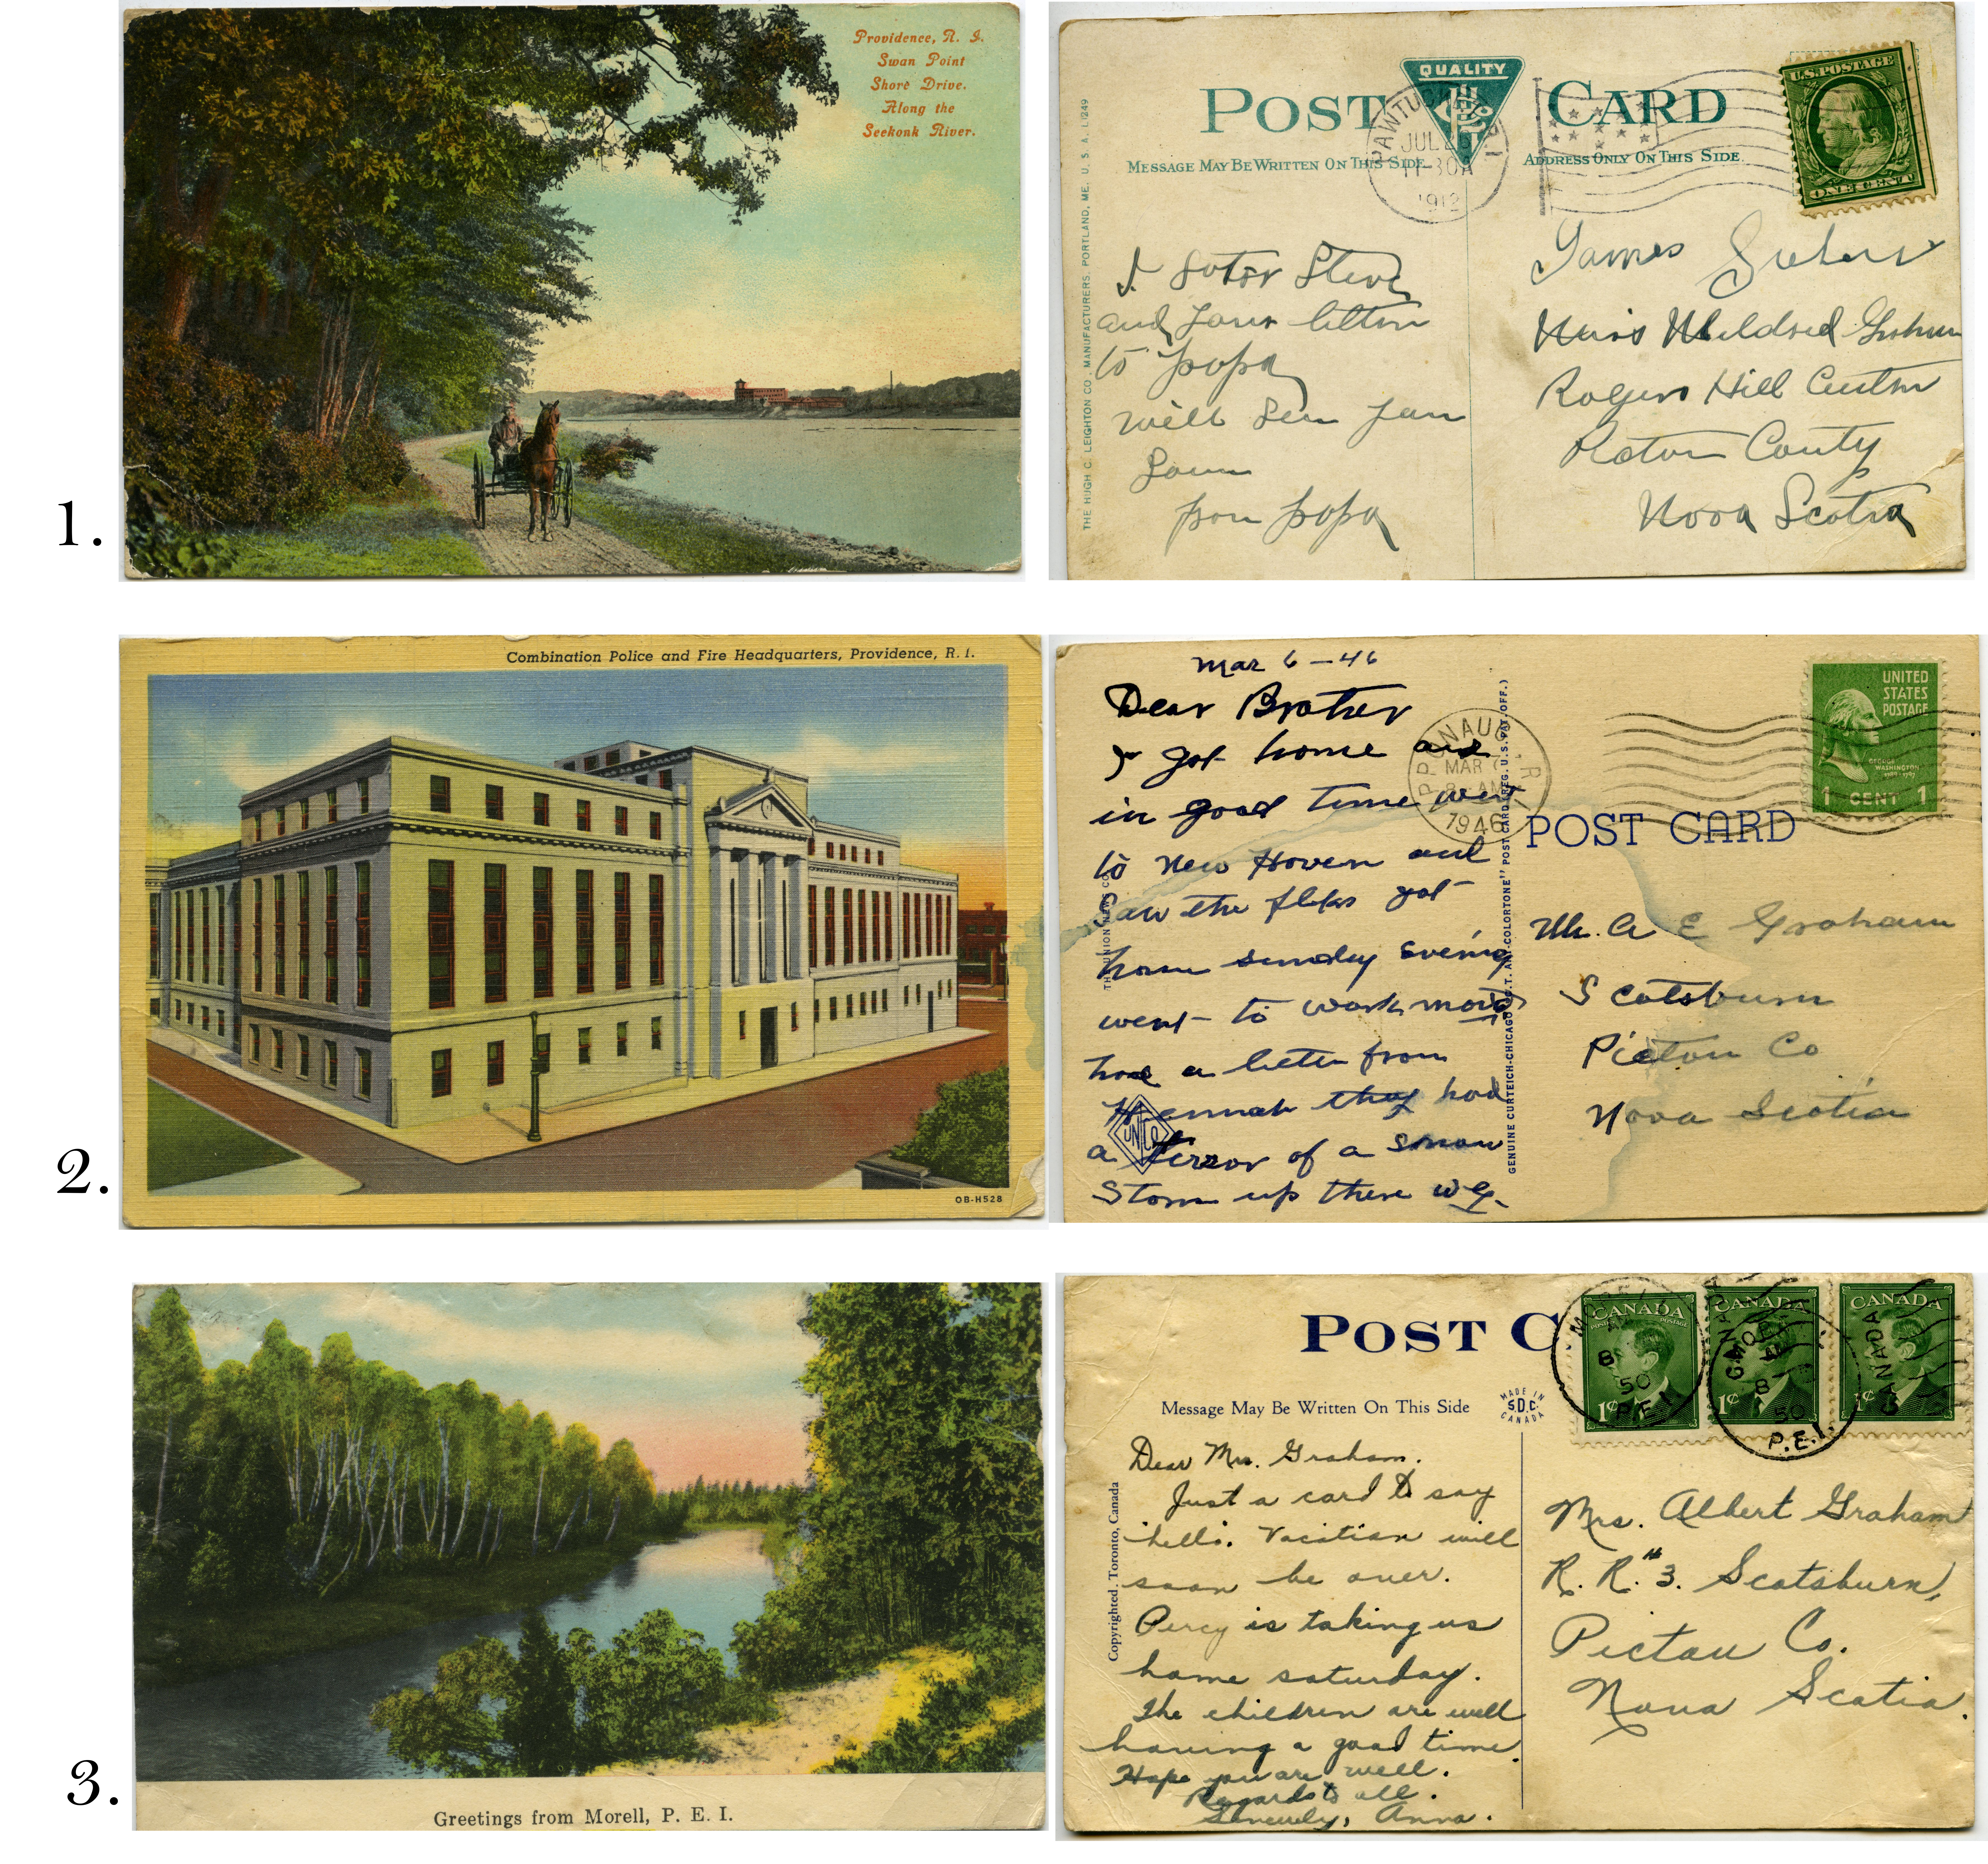 1.
Providence, R. I.
Swan Point
Shore Drive.
Along the
Seekonk River.
POST CARD
QUALITY
MESSAGE MAY BE WRITTEN ON THIS SIDE
ADDRESS ONLY ON THIS SIDE
THE HUGH C. LEIGHTON CO., MANUFACTURERS, PORTLAND, ME. U. S. A.
PAWTUCKET R.I
JUL
11-30A
1912
U.S. POSTAGE
ONE CENT
and
to popa
will
from popa
James
Miss Mildred Graham
Rogers Hill
County
Nova Scotia
2.
Combination Police and Fire Headquarters, Providence, R. I.
OB-H528
Mar 6 - 46
Dear Brother
I got home and
in good time went
to New Haven and
saw the got
home sunday evening
went to work
had a letter from
Hannah they had
a terror of a snow
Storm up there
THE UNION NEWS CO.
UN CO
GENUINE CURTEICH-CHICAGO "C.T. ART-COLORTONE" POST CARD (REG. U.S. PAT. OFF.)
MAR
AM
1946
UNITED
STATES
POSTAGE
GEORGE
WASHINGTON
1 CENT 1
POST CARD
Mr. A E Graham
Scotsburn
Pictou Co
Nova Scotia
3.
Greetings from Morell, P. E. I.
POST C
Message May Be Written On This Side
MADE IN
S.D.C.
CANADA
Copyrighted. Toronto, Canada
CANADA
1¢
CANADA
1¢
CANADA
1¢
50
P.E.I.
50
P.E.I.
Dear Mrs. Graham.
Just a card to say
hello. Vacation will
soon be over.
Percy is taking us
home saturday.
The children are well
having a good time.
Hope you are well.
Regards to all.
Sincerely, Anna.
Mrs. Albert Graham
R. R. #3. Scotsburn,
Pictou Co.
Nova Scotia.